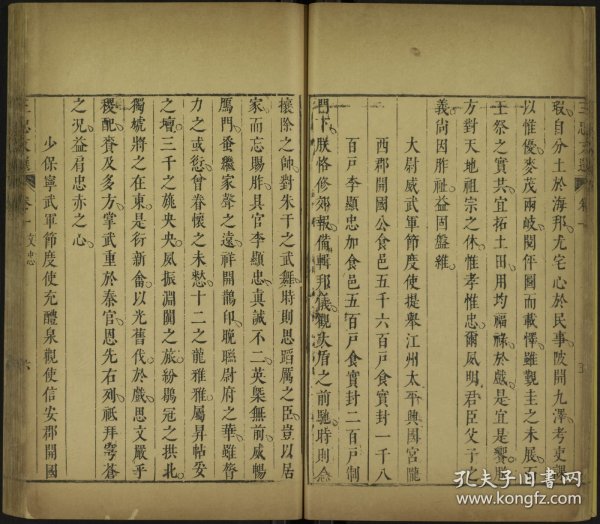 三忠文選 卷一
瑕自分土於海邦尤宅心於民事陂開九澤考吏課
以惟優麥茂兩岐閱年圖而載懌雖覲圭之未展
王祭之實共宜拓土田用均福祿於戲是宜是饗
方對天地祖宗之休惟孝惟忠爾夙明君臣父子之
義尚因胙祉益固盤維
太尉威武軍節度使提舉江州太平興國宮隴
西郡開國公食邑五千六百戶食實封一千八
百戶李顯忠加食邑五百戶食實封二百戶制
門下朕恪修郊報備輯邦儀觀大盾之前馳時則念
攘除之帥對朱干之武舞時則思蹈厲之臣豈以居
家而忘賜胙具官李顯忠真誠不二英槩無前威暢
鴈門蚤繼家聲之遠祥開鵲印晚聯尉府之華雖膂
力之或愆曾眷懷之未愁十二之龍雅雅屬昇帖妥
之壇三千之旄央央夙振淵闐之旅紛鶡冠之拱北
獨虓將之在東是衍新畬以光舊伐於戲思文嚴乎
稷配賚及多方掌武重於秦官恩先右列祇拜穹蒼
之況益肩忠赤之心
少保寧武軍節度使充醴泉觀使信安郡開國
三忠文選 卷一 文忠 六
孔夫子旧书网
www.kongfz.com
孔夫子旧书网
www.kongfz.com